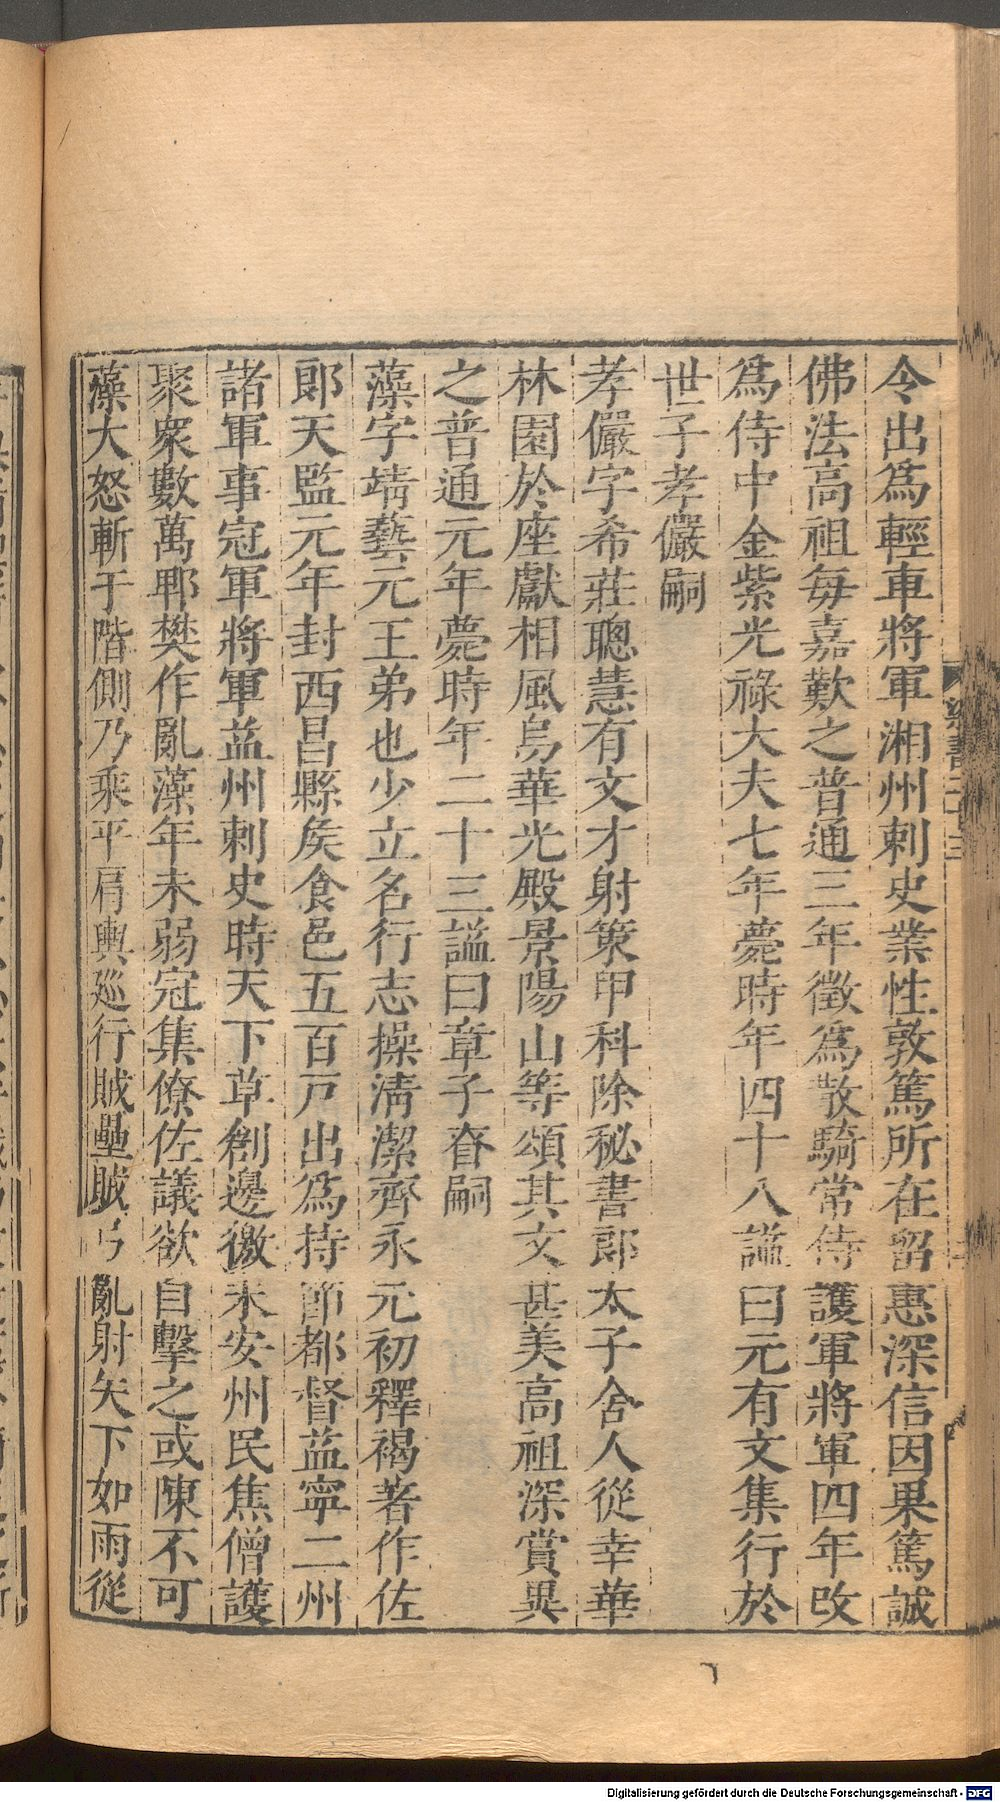 令出爲輕車將軍湘州刺史業性敦篤所在留惠深信因果篤誠
佛法高祖每嘉歎之普通三年徵爲散騎常侍護軍將軍四年改
爲侍中金紫光祿大夫七年薨時年四十八謚曰元有文集行於
世子孝儼嗣
孝儼字希莊聰慧有文才射策甲科除秘書郎太子舍人從幸華
林園於座獻相風烏華光殿景陽山等頌其文甚美高祖深賞異
之普通元年薨時年二十三謚曰章子眘嗣
藻字靖藝元王弟也少立名行志操淸潔齊永元初釋褐著作佐
郎天監元年封西昌縣矦食邑五百戸出爲持節都督益寧二州
諸軍事冠軍將軍益州刺史時天下草創邊徼未安州民焦僧護
聚衆數萬郫樊作亂藻年未弱冠集僚佐議欲自擊之或陳不可
藻大怒斬于階側乃乘平肩輿巡行賊壘賊弓亂射矢下如雨從
梁書二十三
Digitalisierung gefördert durch die Deutsche Forschungsgemeinschaft - DFG